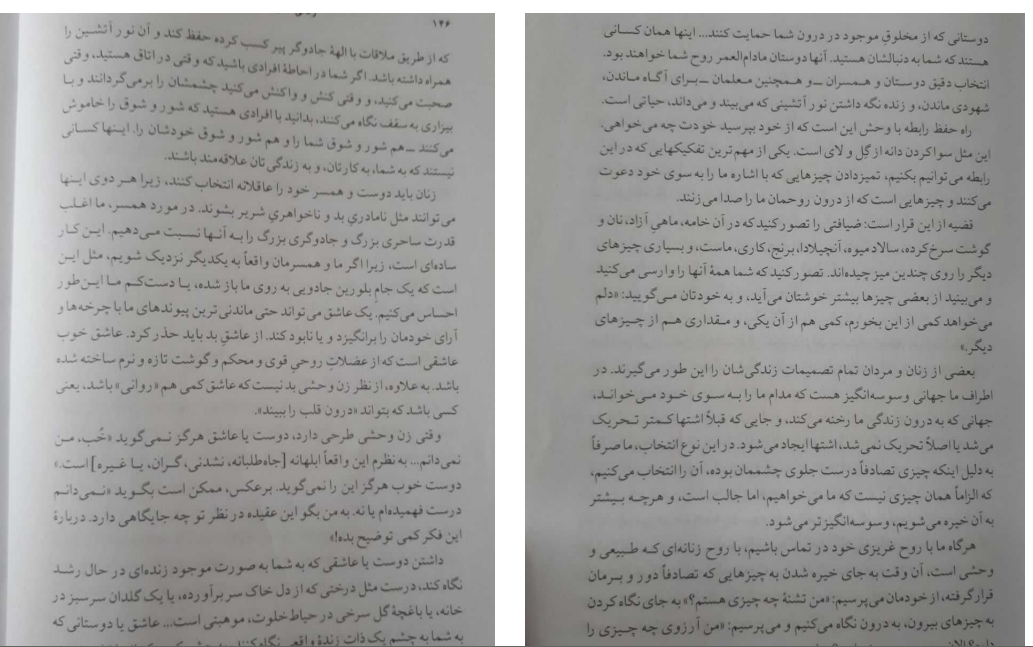 ۱۴۶
که از طریق ملاقات با الههٔ جادوگر پیر کسب کرده حفظ کند و آن نور آتشین را
همراه داشته باشد. اگر شما در احاطهٔ افرادی باشید که وقتی در اتاق هستید، وقتی
صحبت می‌کنید، و وقتی کنش و واکنش می‌کنید چشمشان را برمی‌گردانند و با
بیزاری به سقف نگاه می‌کنند، بدانید با افرادی هستید که شور و شوق را خاموش
می‌کنند ــ هم شور و شوق شما را و هم شور و شوق خودشان را. اینها کسانی
نیستند که به شما، به کارتان، و به زندگی‌تان علاقه‌مند باشند.
زنان باید دوست و همسر خود را عاقلانه انتخاب کنند، زیرا هر دوی اینها
می‌توانند مثل نامادری بد و ناخواهریِ شریر بشوند. در مورد همسر، ما اغلب
قدرت ساحری بزرگ و جادوگری بزرگ را به آنها نسبت می‌دهیم. این کار
ساده‌ای است، زیرا اگر ما و همسرمان واقعاً به یکدیگر نزدیک شویم، مثل این
است که یک جامِ بلورین جادویی به روی ما باز شده، یا دست‌کم ما این‌طور
احساس می‌کنیم. یک عاشق می‌تواند حتی ماندنی‌ترین پیوندهای ما با چرخه‌ها و
آرای خودمان را برانگیزد و یا نابود کند. از عاشقِ بد باید حذر کرد. عاشق خوب
عاشقی است که از عضلاتِ روحیِ قوی و محکم و گوشت تازه و نرم ساخته شده
باشد. به علاوه، از نظر زن وحشی بد نیست که عاشق کمی هم «روانی» باشد، یعنی
کسی باشد که بتواند «درون قلب را ببیند».
وقتی زن وحشی طرحی دارد، دوست یا عاشق هرگز نمی‌گوید «خُب، من
نمی‌دانم... به نظرم این واقعاً ابلهانه [جاه‌طلبانه، نشدنی، گران، یا غیره] است.»
دوست خوب هرگز این را نمی‌گوید. برعکس، ممکن است بگوید «نمی‌دانم
درست فهمیده‌ام یا نه. به من بگو این عقیده در نظر تو چه جایگاهی دارد. دربارهٔ
این فکر کمی توضیح بده!»
داشتن دوست یا عاشقی که به شما به صورت موجود زنده‌ای در حال رشد
نگاه کند، درست مثل درختی که از دل خاک سر برآورده، یا یک گلدان سرسبز در
خانه، یا باغچهٔ گل سرخی در حیاط خلوت، موهبتی است... عاشق یا دوستانی که
به شما به چشم یک ذات زندهٔ واقعی نگاه کنند
دوستانی که از مخلوقِ موجود در درون شما حمایت کنند... اینها همان کسانی
هستند که شما به دنبالشان هستید. آنها دوستان مادام‌العمر روح شما خواهند بود.
انتخاب دقیق دوستان و همسران ــ و همچنین معلمان ــ برای آگاه ماندن،
شهودی ماندن، و زنده نگه داشتن نور آتشینی که می‌بیند و می‌داند، حیاتی است.
راه حفظ رابطه با وحش این است که از خود بپرسید خودت چه می‌خواهی.
این مثل سوا کردن دانه از گِل و لای است. یکی از مهم‌ترین تفکیکهایی که در این
رابطه می‌توانیم بکنیم، تمیز دادن چیزهایی که با اشاره ما را به سوی خود دعوت
می‌کنند و چیزهایی است که از درون روحمان ما را صدا می‌زنند.
قضیه از این قرار است: ضیافتی را تصور کنید که در آن خامه، ماهیِ آزاد، نان و
گوشت سرخ‌کرده، سالاد میوه، آنچیلادا، برنج، کاری، ماست، و بسیاری چیزهای
دیگر را روی چندین میز چیده‌اند. تصور کنید که شما همهٔ آنها را وارسی می‌کنید
و می‌بینید از بعضی چیزها بیشتر خوشتان می‌آید، و به خودتان می‌گویید: «دلم
می‌خواهد کمی از این بخورم، کمی هم از آن یکی، و مقداری هم از چیزهای
دیگر.»
بعضی از زنان و مردان تمام تصمیمات زندگی‌شان را این طور می‌گیرند. در
اطراف ما جهانی وسوسه‌انگیز هست که مدام ما را به سوی خود می‌خواند،
جهانی که به درون زندگی ما رخنه می‌کند، و جایی که قبلاً اشتها کمتر تحریک
می‌شد یا اصلاً تحریک نمی‌شد، اشتها ایجاد می‌شود. در این نوع انتخاب، ما صرفاً
به دلیل اینکه چیزی تصادفاً درست جلوی چشممان بوده، آن را انتخاب می‌کنیم،
که الزاماً همان چیزی نیست که ما می‌خواهیم، اما جالب است، و هرچه بیشتر
به آن خیره می‌شویم، وسوسه‌انگیزتر می‌شود.
هرگاه ما با روح غریزی خود در تماس باشیم، با روح زنانه‌ای که طبیعی و
وحشی است، آن وقت به جای خیره شدن به چیزهایی که تصادفاً دور و برمان
قرار گرفته، از خودمان می‌پرسیم: «من تشنهٔ چه چیزی هستم؟» به جای نگاه کردن
به چیزهای بیرون، به درون نگاه می‌کنیم و می‌پرسیم: «من آرزوی چه چیزی را